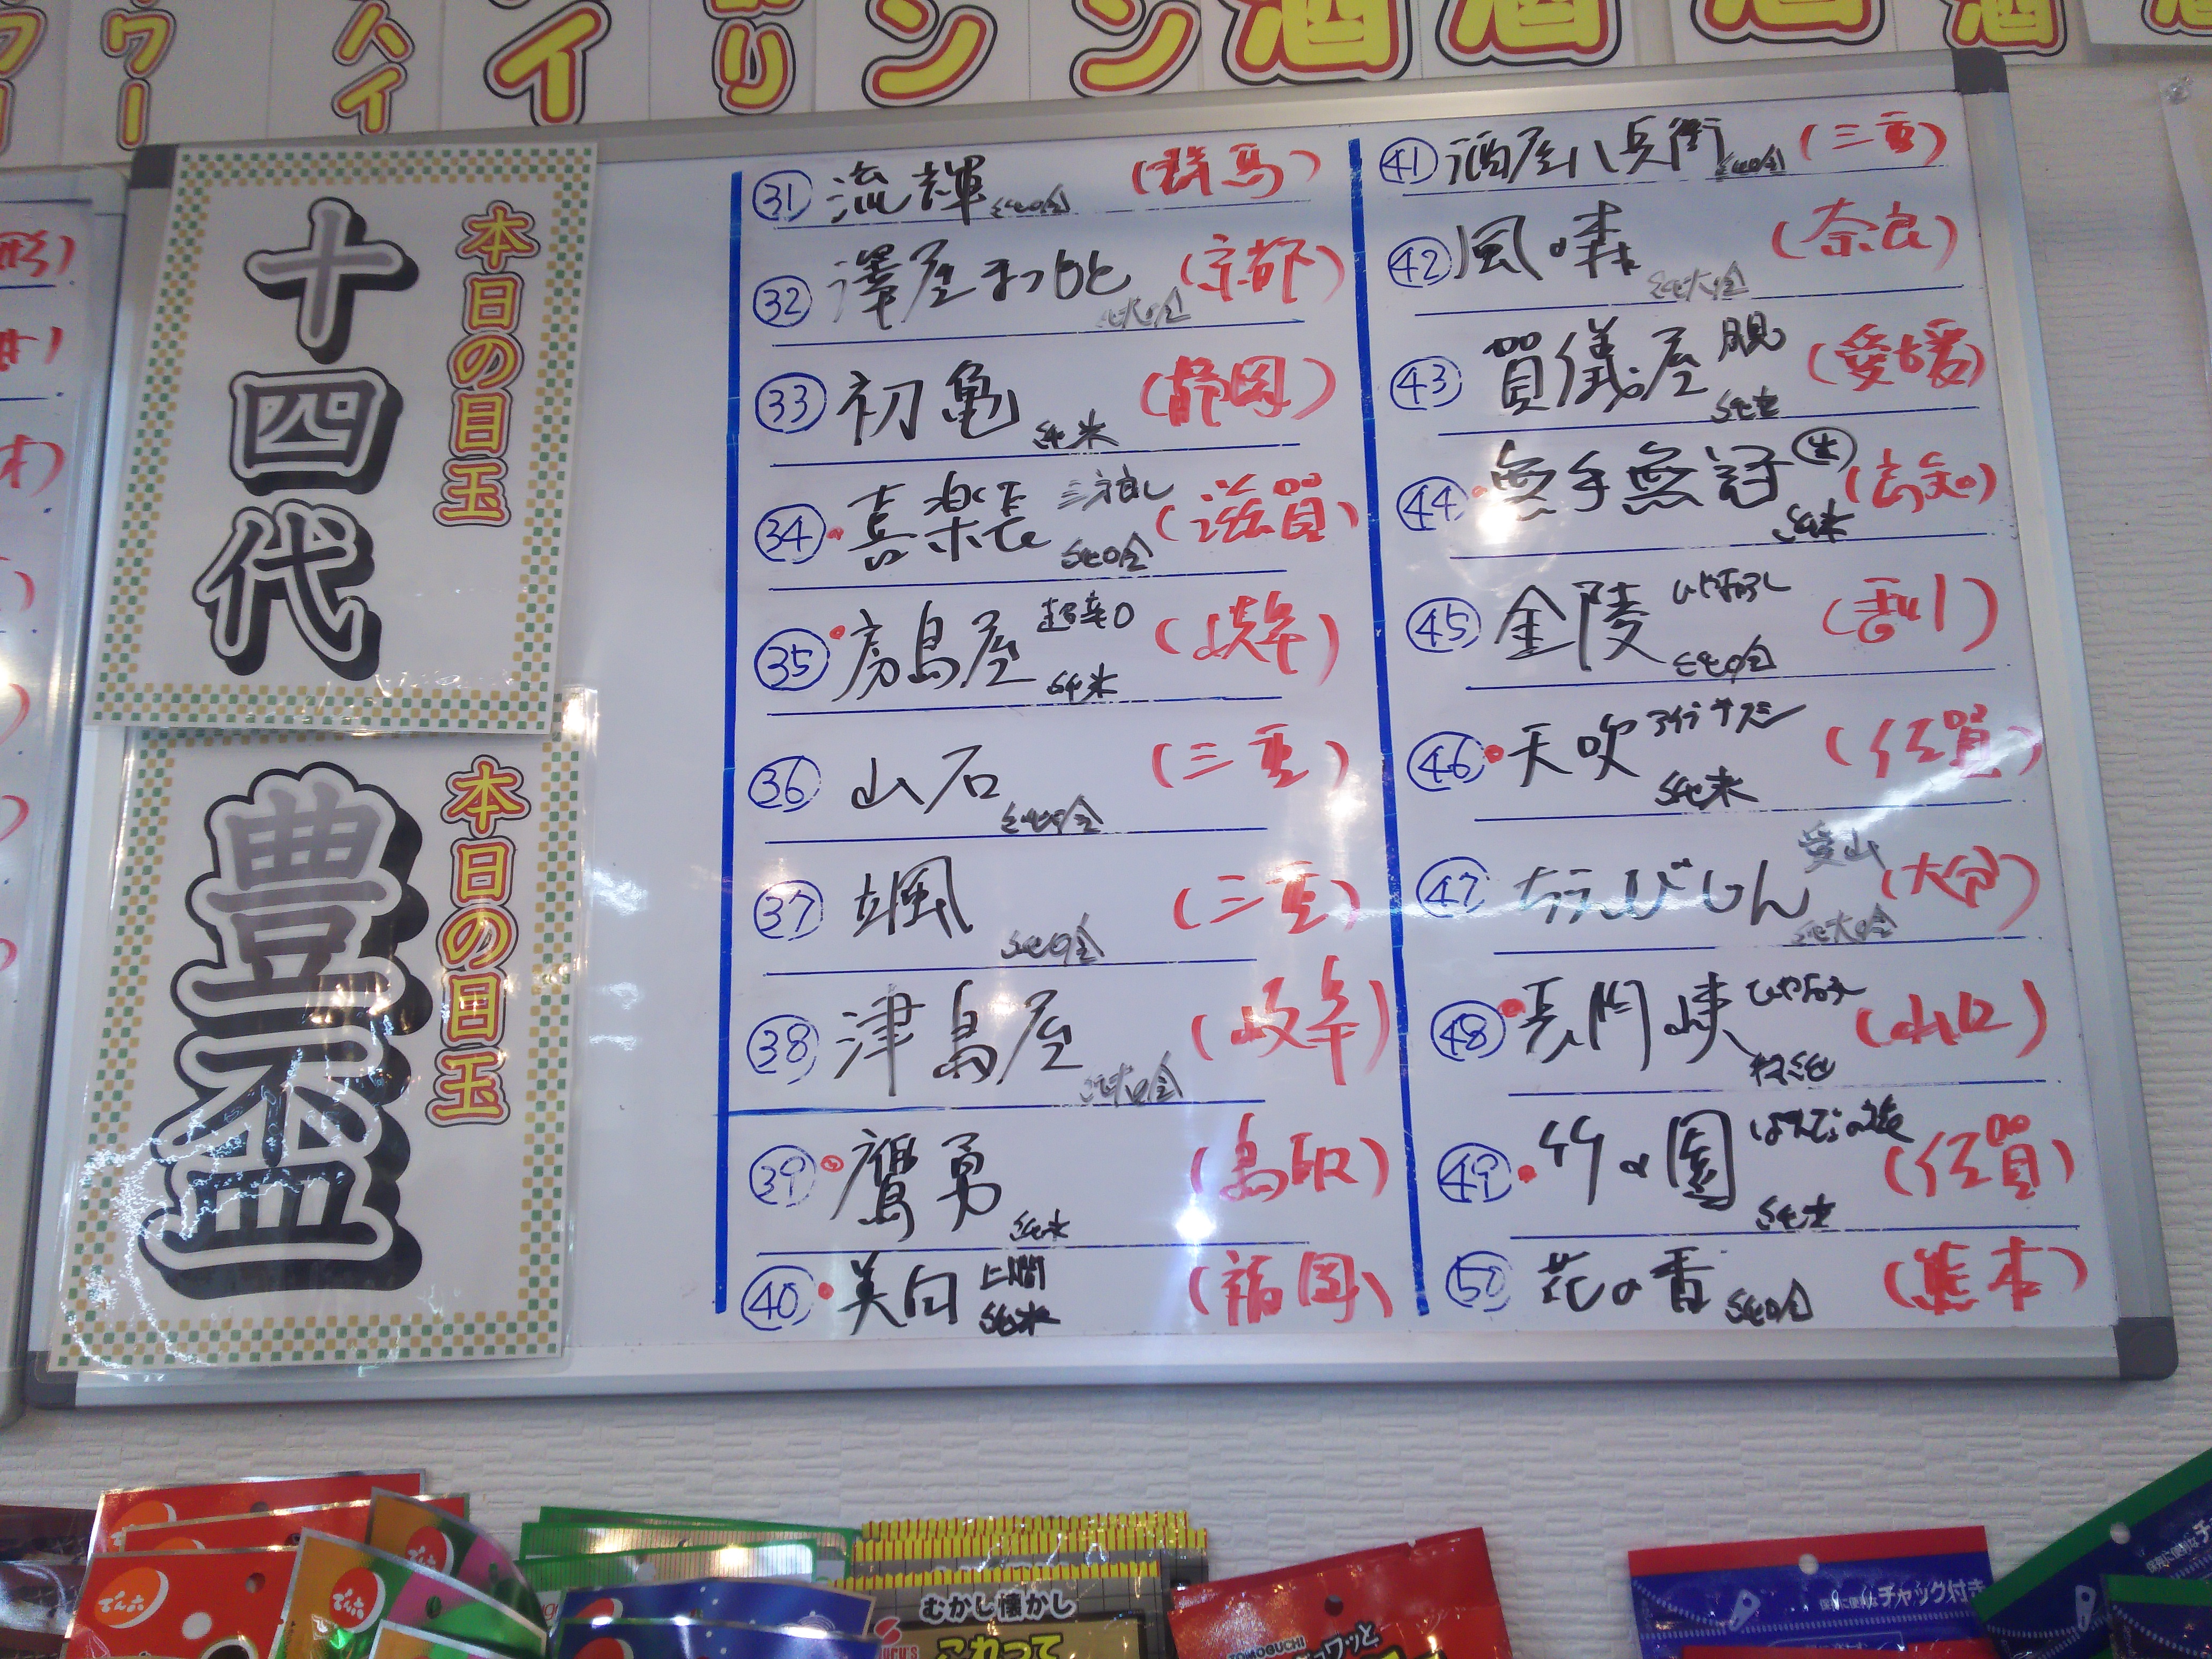 本日の目玉
十四代
本日の目玉
豊盃
㉛ 流輝 純吟 (群馬)
㉜ 澤屋まつもと 純大吟 (京都)
㉝ 初亀 純米 (静岡)
㉞ 喜楽長 純吟 (滋賀)
㉟ 房島屋 超辛口 純米 (岐阜)
㊱ 山石 純吟 (三重)
㊲ 颯 純吟 (三重)
㊳ 津島屋 純大吟 (岐阜)
㊴ 鷹勇 純米 (鳥取)
㊵ 美田 山廃 純米 (福岡)
㊶ 酒屋八兵衛 純吟 (三重)
㊷ 風の森 純大吟 (奈良)
㊸ 賀儀屋 純米 (愛媛)
㊹ 無手無冠 生 純米 (高知)
㊺ 金陵 ひやおろし 純吟 (香川)
㊻ 天吹 純米 (佐賀)
㊼ ちえびじん 愛山 純大吟 (大分)
㊽ 長門峡 ひやおろし 特純 (山口)
㊾ 竹の園 純米 (佐賀)
㊿ 花の香 純吟 (熊本)
でん六
でん六
でん六
むかし懐かし
これって
TOMOGUCHI
保存に便利なチャック付き